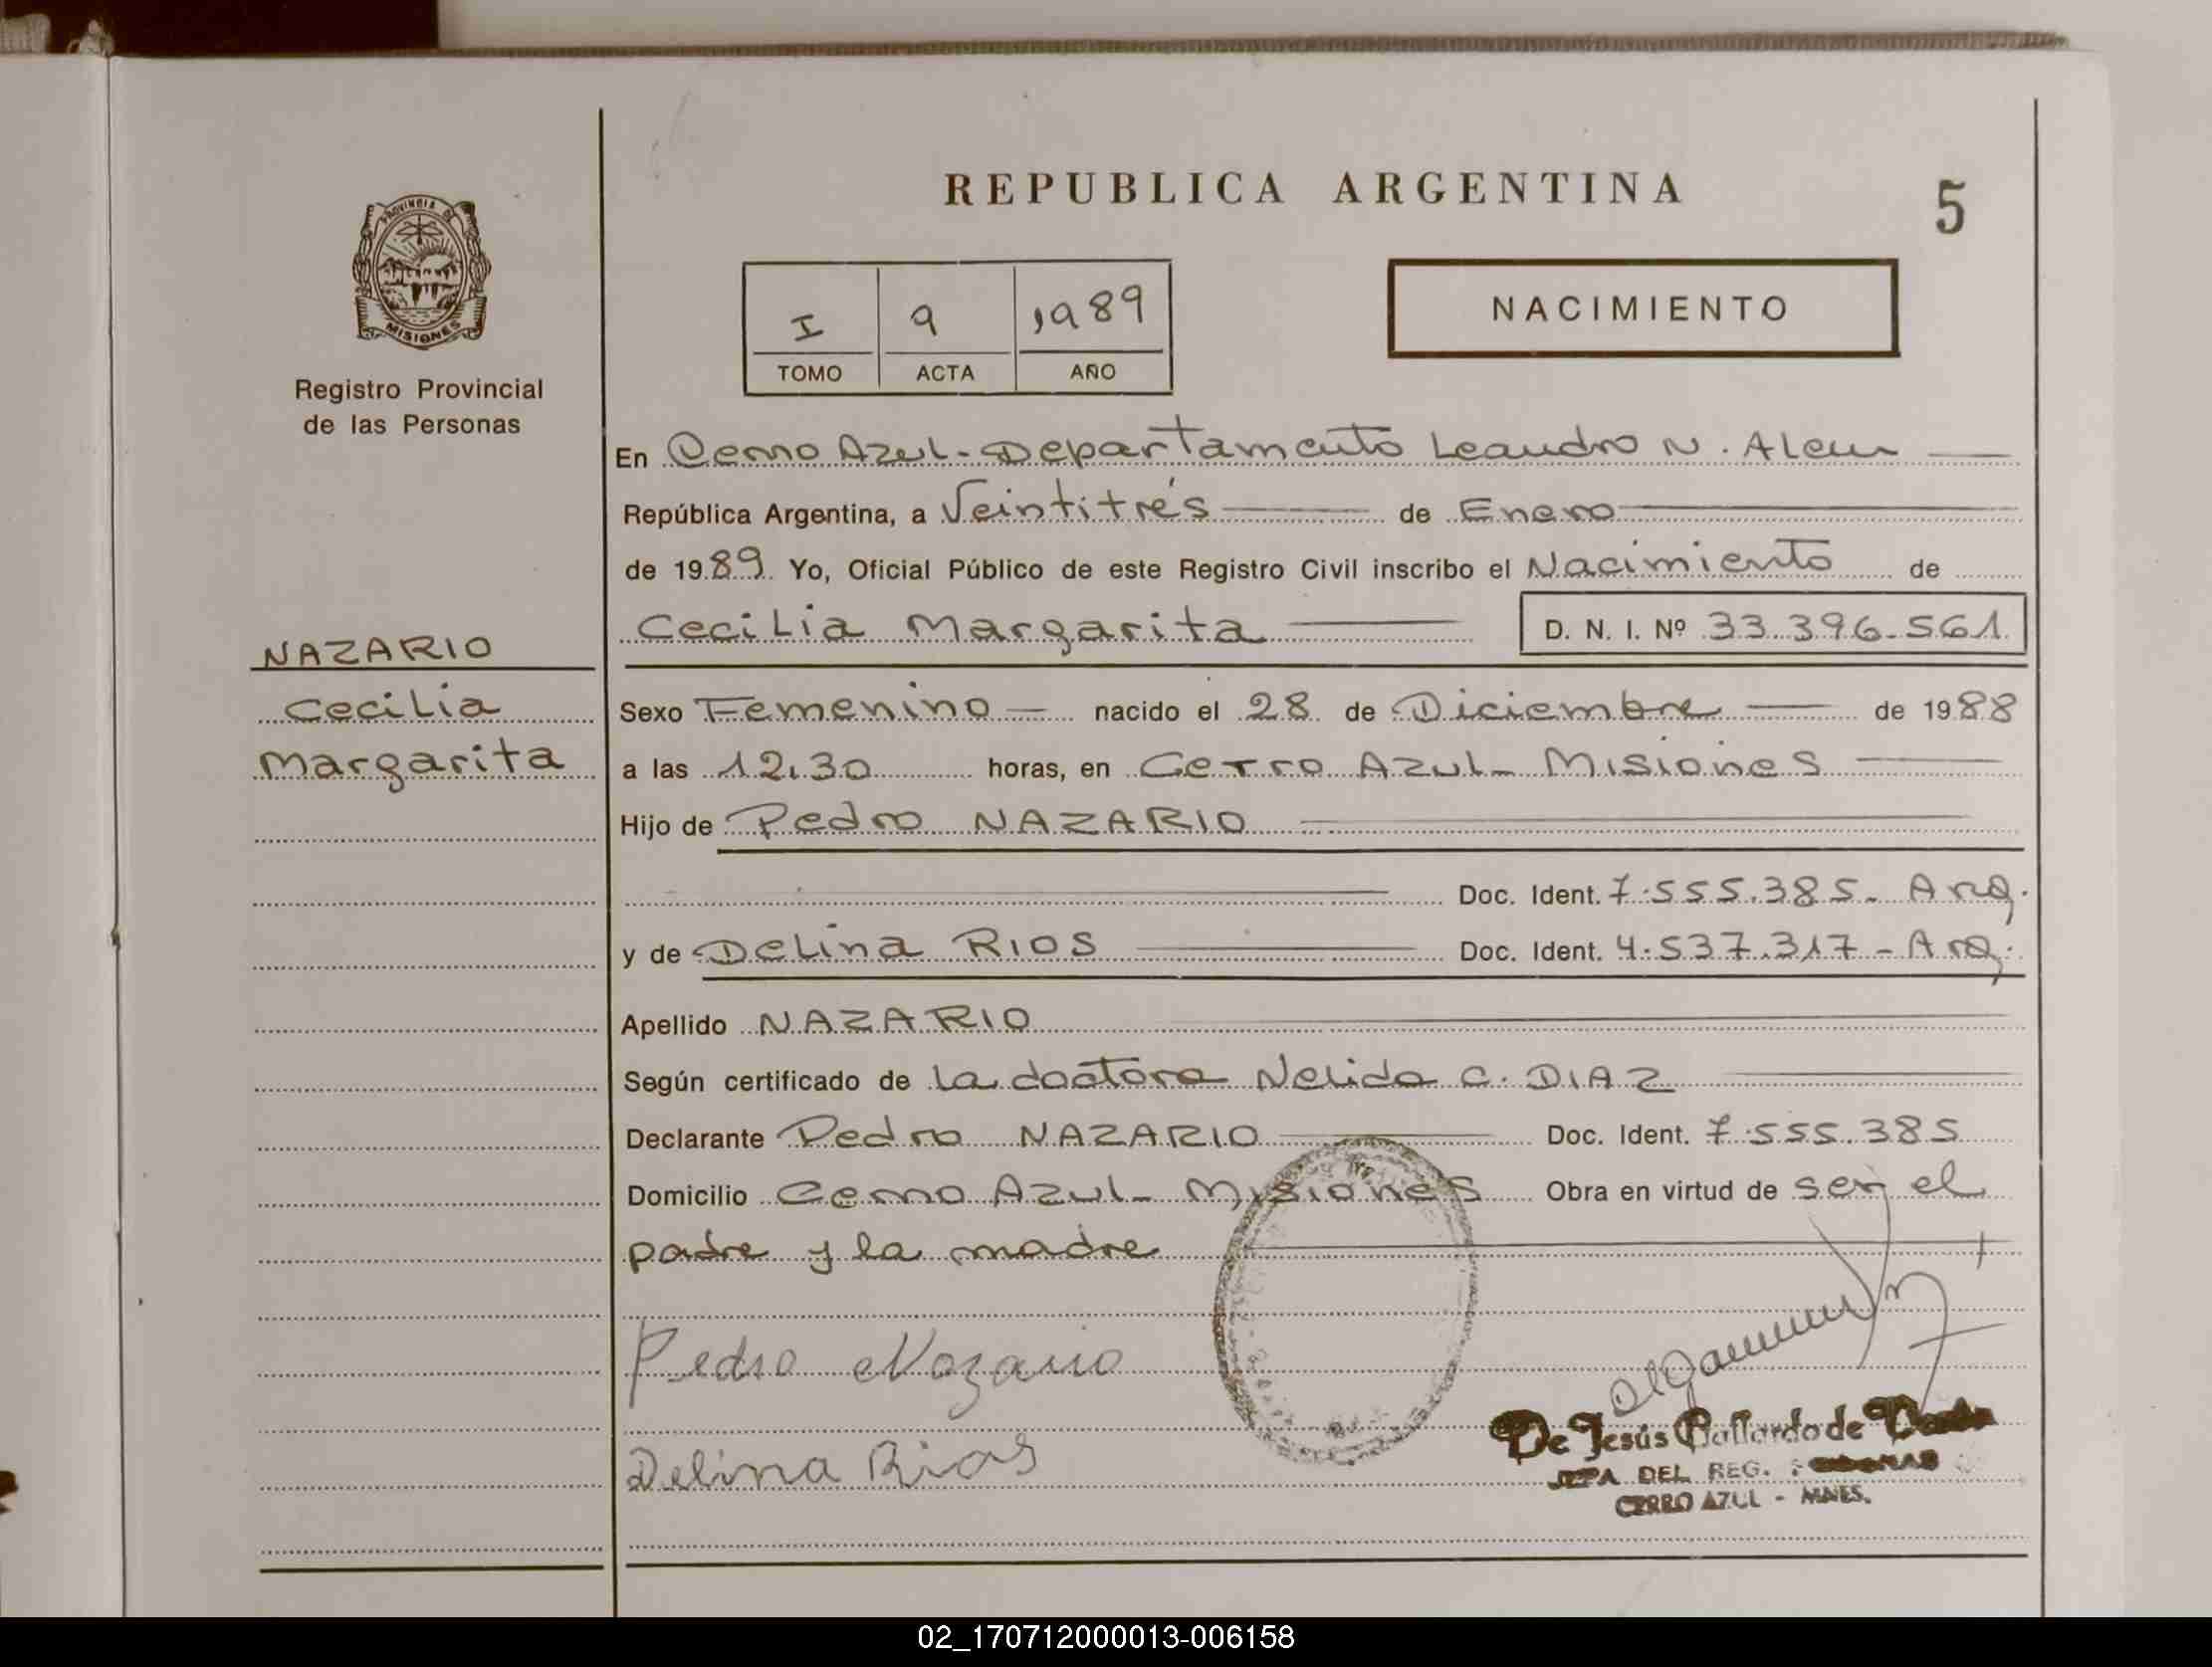 REPUBLICA ARGENTINA
5
PROVINCIA DE
MISIONES
Registro Provincial
de las Personas
I 9 1989
TOMO ACTA AÑO
NACIMIENTO
En Cerro Azul - Departamento Leandro N. Alem
República Argentina, a Veintitrés de Enero
de 1989 Yo, Oficial Público de este Registro Civil inscribo el Nacimiento de
Cecilia Margarita D. N. I. Nº 33.396.561
NAZARIO
Cecilia
Margarita
Sexo Femenino nacido el 28 de Diciembre de 1988
a las 12,30 horas, en Cerro Azul - Misiones
Hijo de Pedro NAZARIO
Doc. Ident. 7.555.385 - Arg.
y de Delina RIOS Doc. Ident. 4.537.317 - Arg.
Apellido NAZARIO
Según certificado de la doctora Nelida C. DIAZ
Declarante Pedro NAZARIO Doc. Ident. 7.555.385
Domicilio Cerro Azul - Misiones Obra en virtud de ser el
padre y la madre
Pedro Nazario
Delina Rios
De Jesús Gallardo de
JEFA DEL REG.
CERRO AZUL - MNES.
02_170712000013-006158